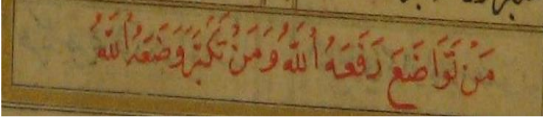 مَنْ تَوَاضَعَ رَفَعَهُ اللَّهُ وَمَنْ تَكَبَّرَ وَضَعَهُ اللَّهُ